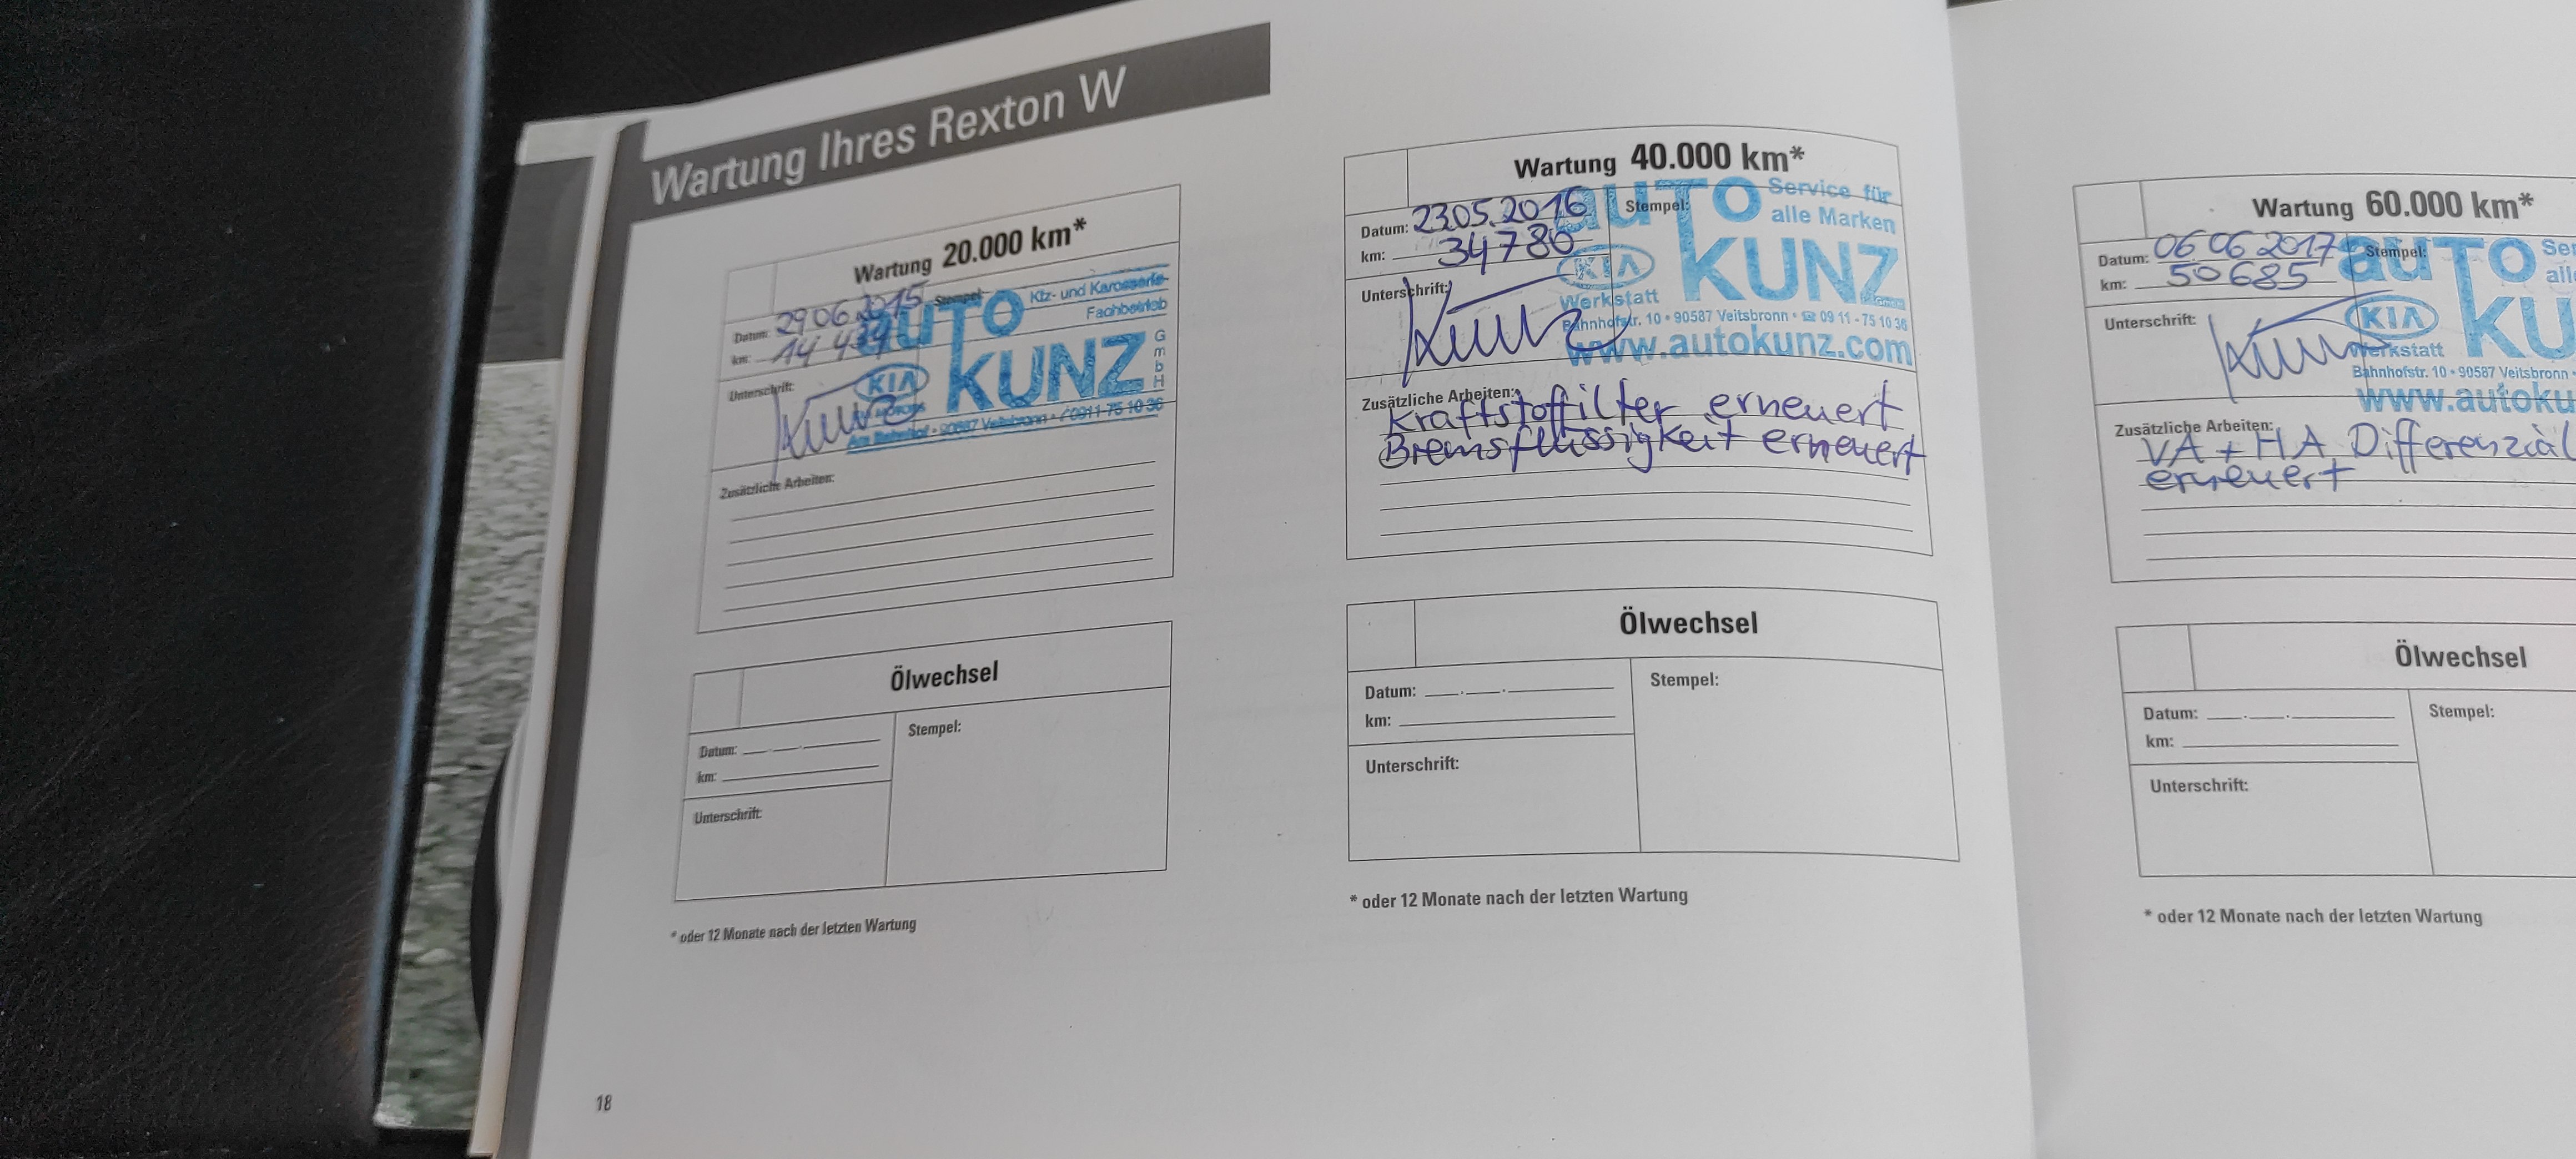 Wartung Ihres Rexton W
Wartung 20.000 km*
Datum: 29 06 2015
Stempel:
km: 14 434
Unterschrift:
auTO
Kfz- und Karosserie-
Fachbetrieb
KIA
KUNZ
GmbH
Am Bahnhof • 90587 Veitsbronn • 0911-75 10 36
Kunz
Zusätzliche Arbeiten:
Ölwechsel
Datum:
km:
Stempel:
Unterschrift:
* oder 12 Monate nach der letzten Wartung
18
Wartung 40.000 km*
Datum: 23.05.2016
Stempel:
km: 34780
Unterschrift:
auTO
Service für
alle Marken
KIA
KUNZ
GmbH
Werkstatt
Bahnhofstr. 10 • 90587 Veitsbronn • ☎ 09 11 - 75 10 36
www.autokunz.com
Kunz
Zusätzliche Arbeiten:
Kraftstoffilter erneuert
Bremsflüssigkeit erneuert
Ölwechsel
Datum:
km:
Stempel:
Unterschrift:
* oder 12 Monate nach der letzten Wartung
Wartung 60.000 km*
Datum: 06 06 2017
Stempel:
km: 50685
Unterschrift:
auTO
Ser
all
KIA
KU
Werkstatt
Bahnhofstr. 10 • 90587 Veitsbronn •
www.autoku
Kunz
Zusätzliche Arbeiten:
VA + HA Differenzial
erneuert
Ölwechsel
Datum:
km:
Stempel:
Unterschrift:
* oder 12 Monate nach der letzten Wartung